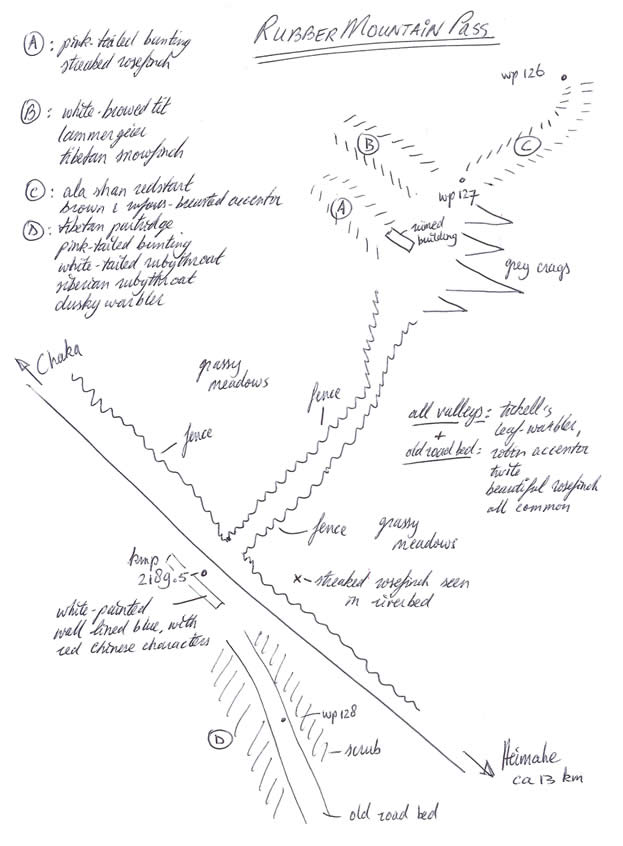 RUBBER MOUNTAIN PASS
A : pink-tailed bunting
streaked rosefinch
B : white-browed tit
lammergeier
tibetan snowfinch
C : ala shan redstart
brown & rufous-breasted accentor
D : tibetan partridge
pink-tailed bunting
white-tailed rubythroat
siberian rubythroat
dusky warbler
wp 126
B
C
wp 127
A
ruined
building
grey crags
Chaka
grassy
meadows
fence
fence
all valleys : tickell's
+ leaf-warbler,
old road bed : robin accentor
twite
beautiful rosefinch
all common
fence
grassy
meadows
kmp
2189.5
x - streaked rosefinch seen
in riverbed
white-painted
wall lined blue, with
red Chinese characters
wp 128
D
scrub
Heimahe
ca 13 km
old road bed